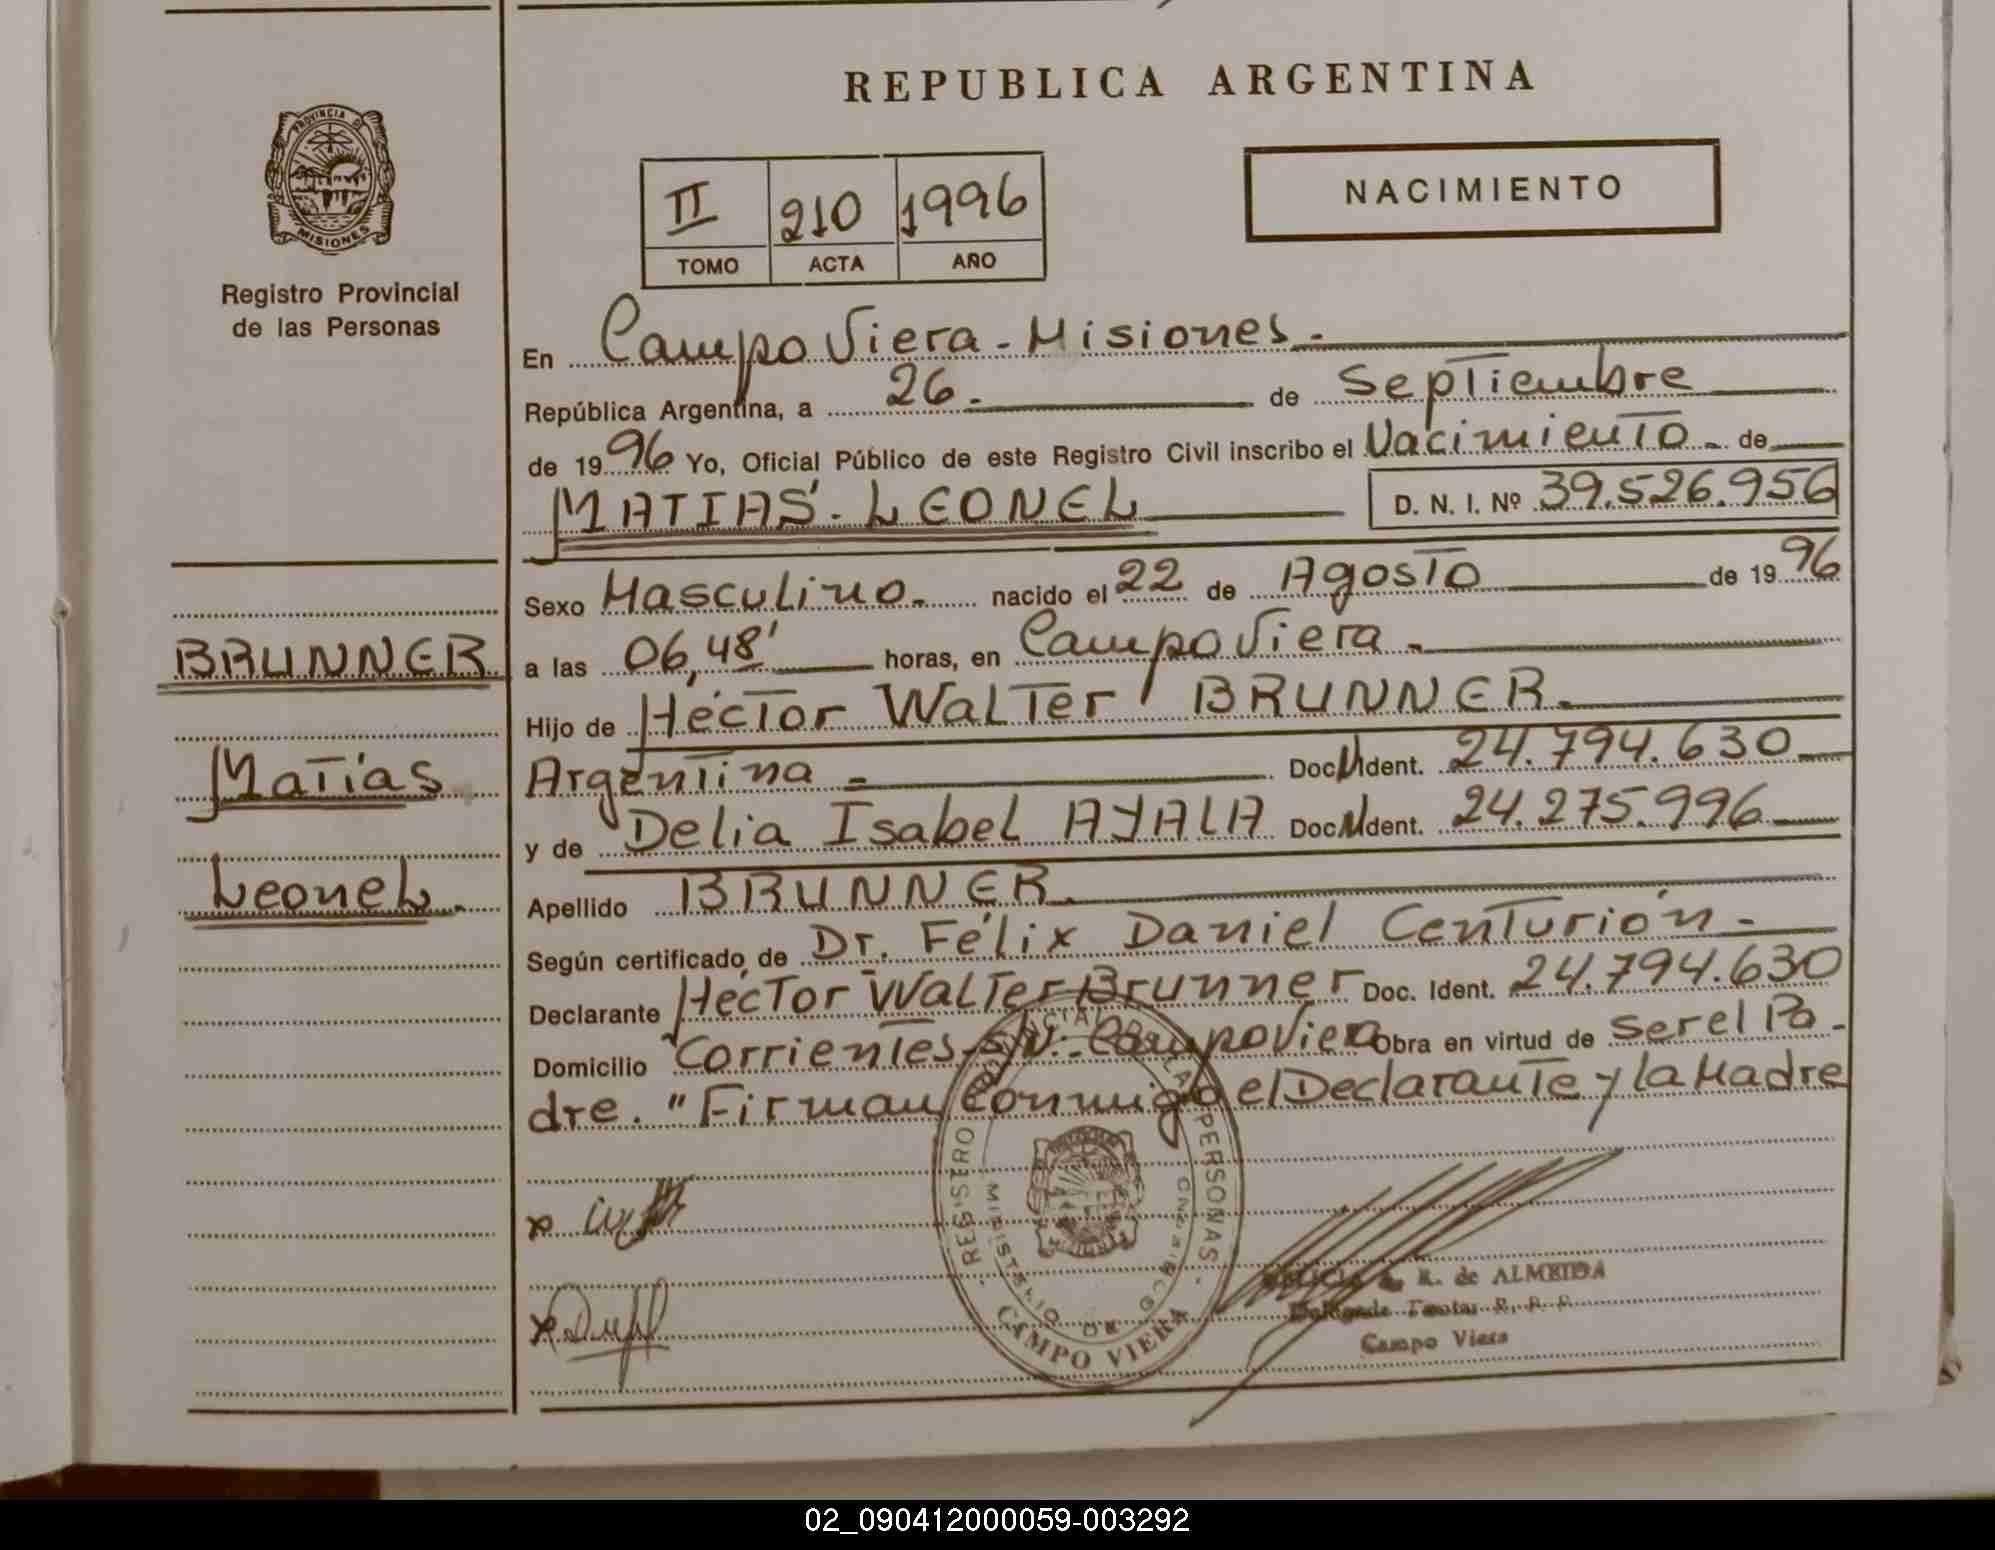 REPUBLICA ARGENTINA
PROVINCIA DE
MISIONES
Registro Provincial
de las Personas
II 210 1996
TOMO ACTA AÑO
NACIMIENTO
En Campo Viera - Misiones.
República Argentina, a 26. de Septiembre
de 1996 Yo, Oficial Público de este Registro Civil inscribo el Nacimiento de
MATIAS LEONEL D. N. I. Nº 39.526.956
Sexo Masculino. nacido el 22 de Agosto de 1996
a las 06,48' horas, en Campo Viera.
Hijo de Héctor Walter BRUNNER.
Argentina Doc. N. Ident. 24.794.630
y de Delia Isabel AYALA Doc. N. Ident. 24.275.996
Apellido BRUNNER.
Según certificado de Dr. Félix Daniel Centurión.
Declarante Héctor Walter Brunner Doc. Ident. 24.794.630
Domicilio Corrientes s/n. Campo Viera Obra en virtud de ser el Pa-
dre. "Firman Conmigo el Declarante y la Madre
BRUNNER
Matías
Leonel.
REGISTRO PERSONAS
CAMPO VIERA
R. de ALMEIDA
Campo Viera
02_090412000059-003292